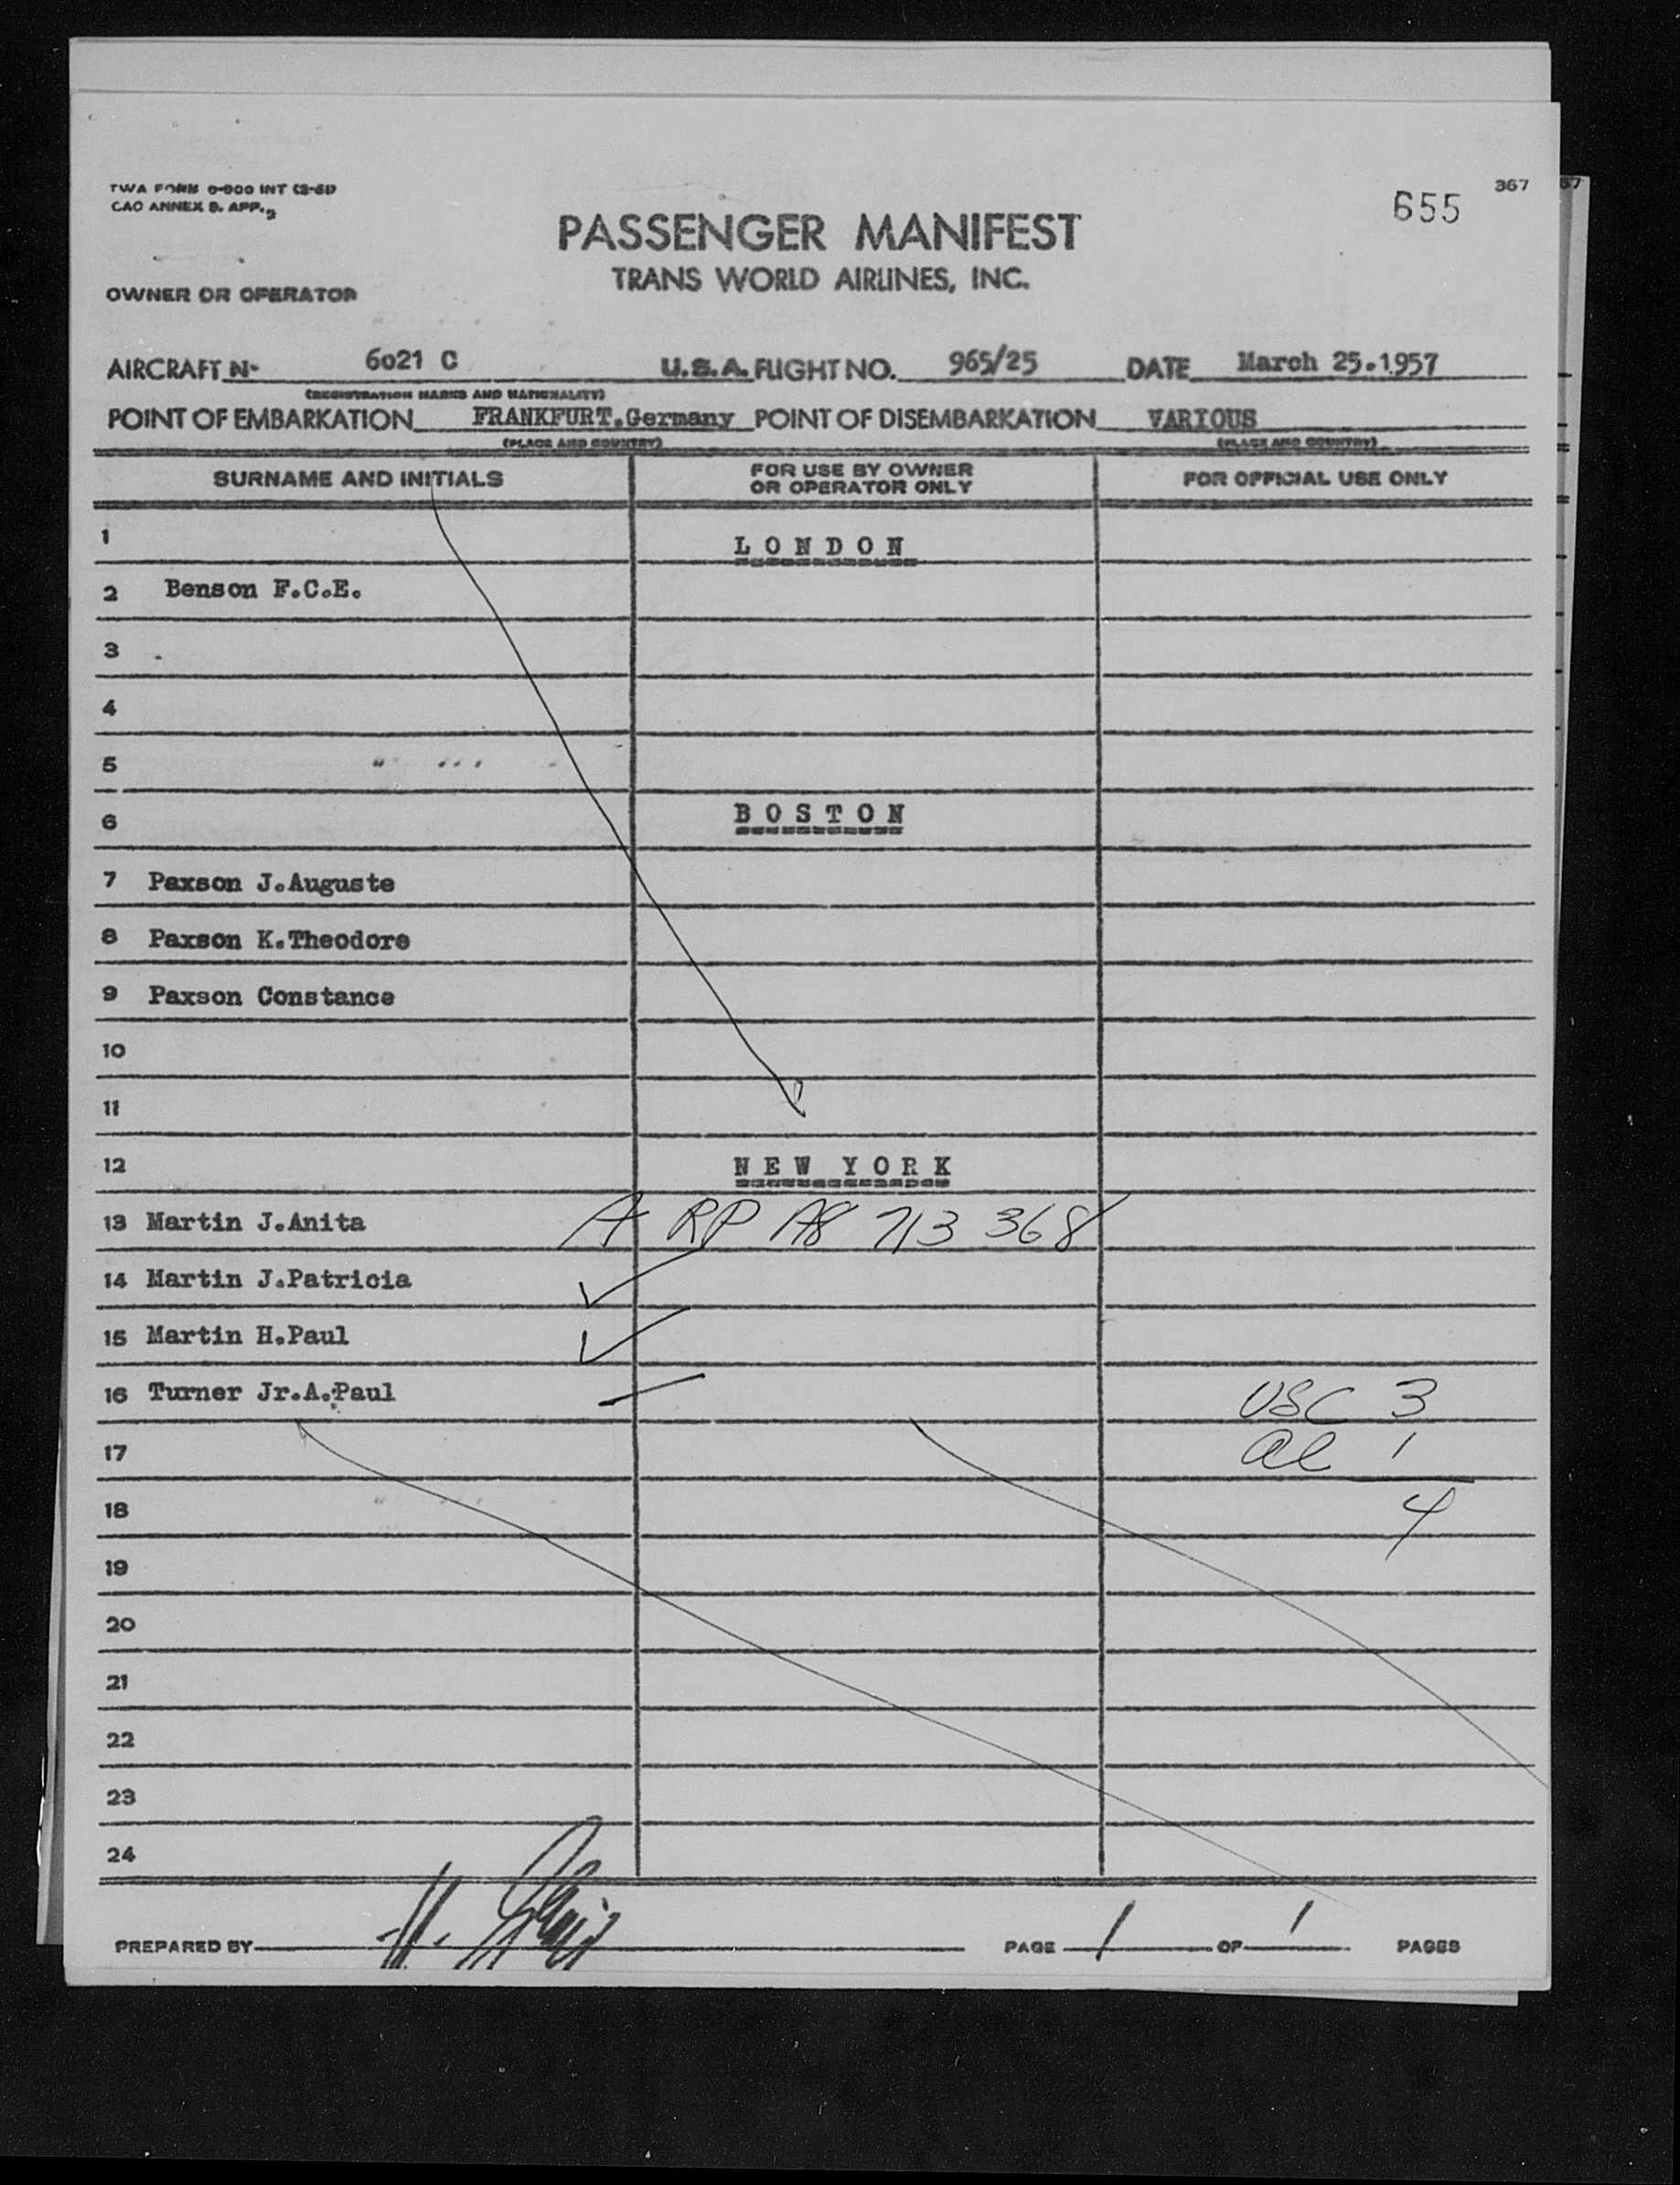 367
655
TWA FORM 0-900 INT (3-51)
CAO ANNEX 9. APP. 3
PASSENGER MANIFEST
TRANS WORLD AIRLINES, INC.
OWNER OR OPERATOR
AIRCRAFT N- 6021 C U.S.A. FLIGHT NO. 965/25 DATE March 25.1957
(REGISTRATION MARKS AND NATIONALITY)
POINT OF EMBARKATION FRANKFURT.Germany POINT OF DISEMBARKATION VARIOUS
(PLACE AND COUNTRY) (PLACE AND COUNTRY)
SURNAME AND INITIALS FOR USE BY OWNER OR OPERATOR ONLY FOR OFFICIAL USE ONLY
1 LONDON
2 Benson F.C.E.
3
4
5
6 BOSTON
7 Paxson J.Auguste
8 Paxson K.Theodore
9 Paxson Constance
10
11
12 NEW YORK
13 Martin J.Anita A RP A8 713 368
14 Martin J.Patricia ✓
15 Martin H.Paul ✓
16 Turner Jr.A.Paul USC 3
17 al 1
18 4
19
20
21
22
23
24
PREPARED BY PAGE 1 OF 1 PAGES